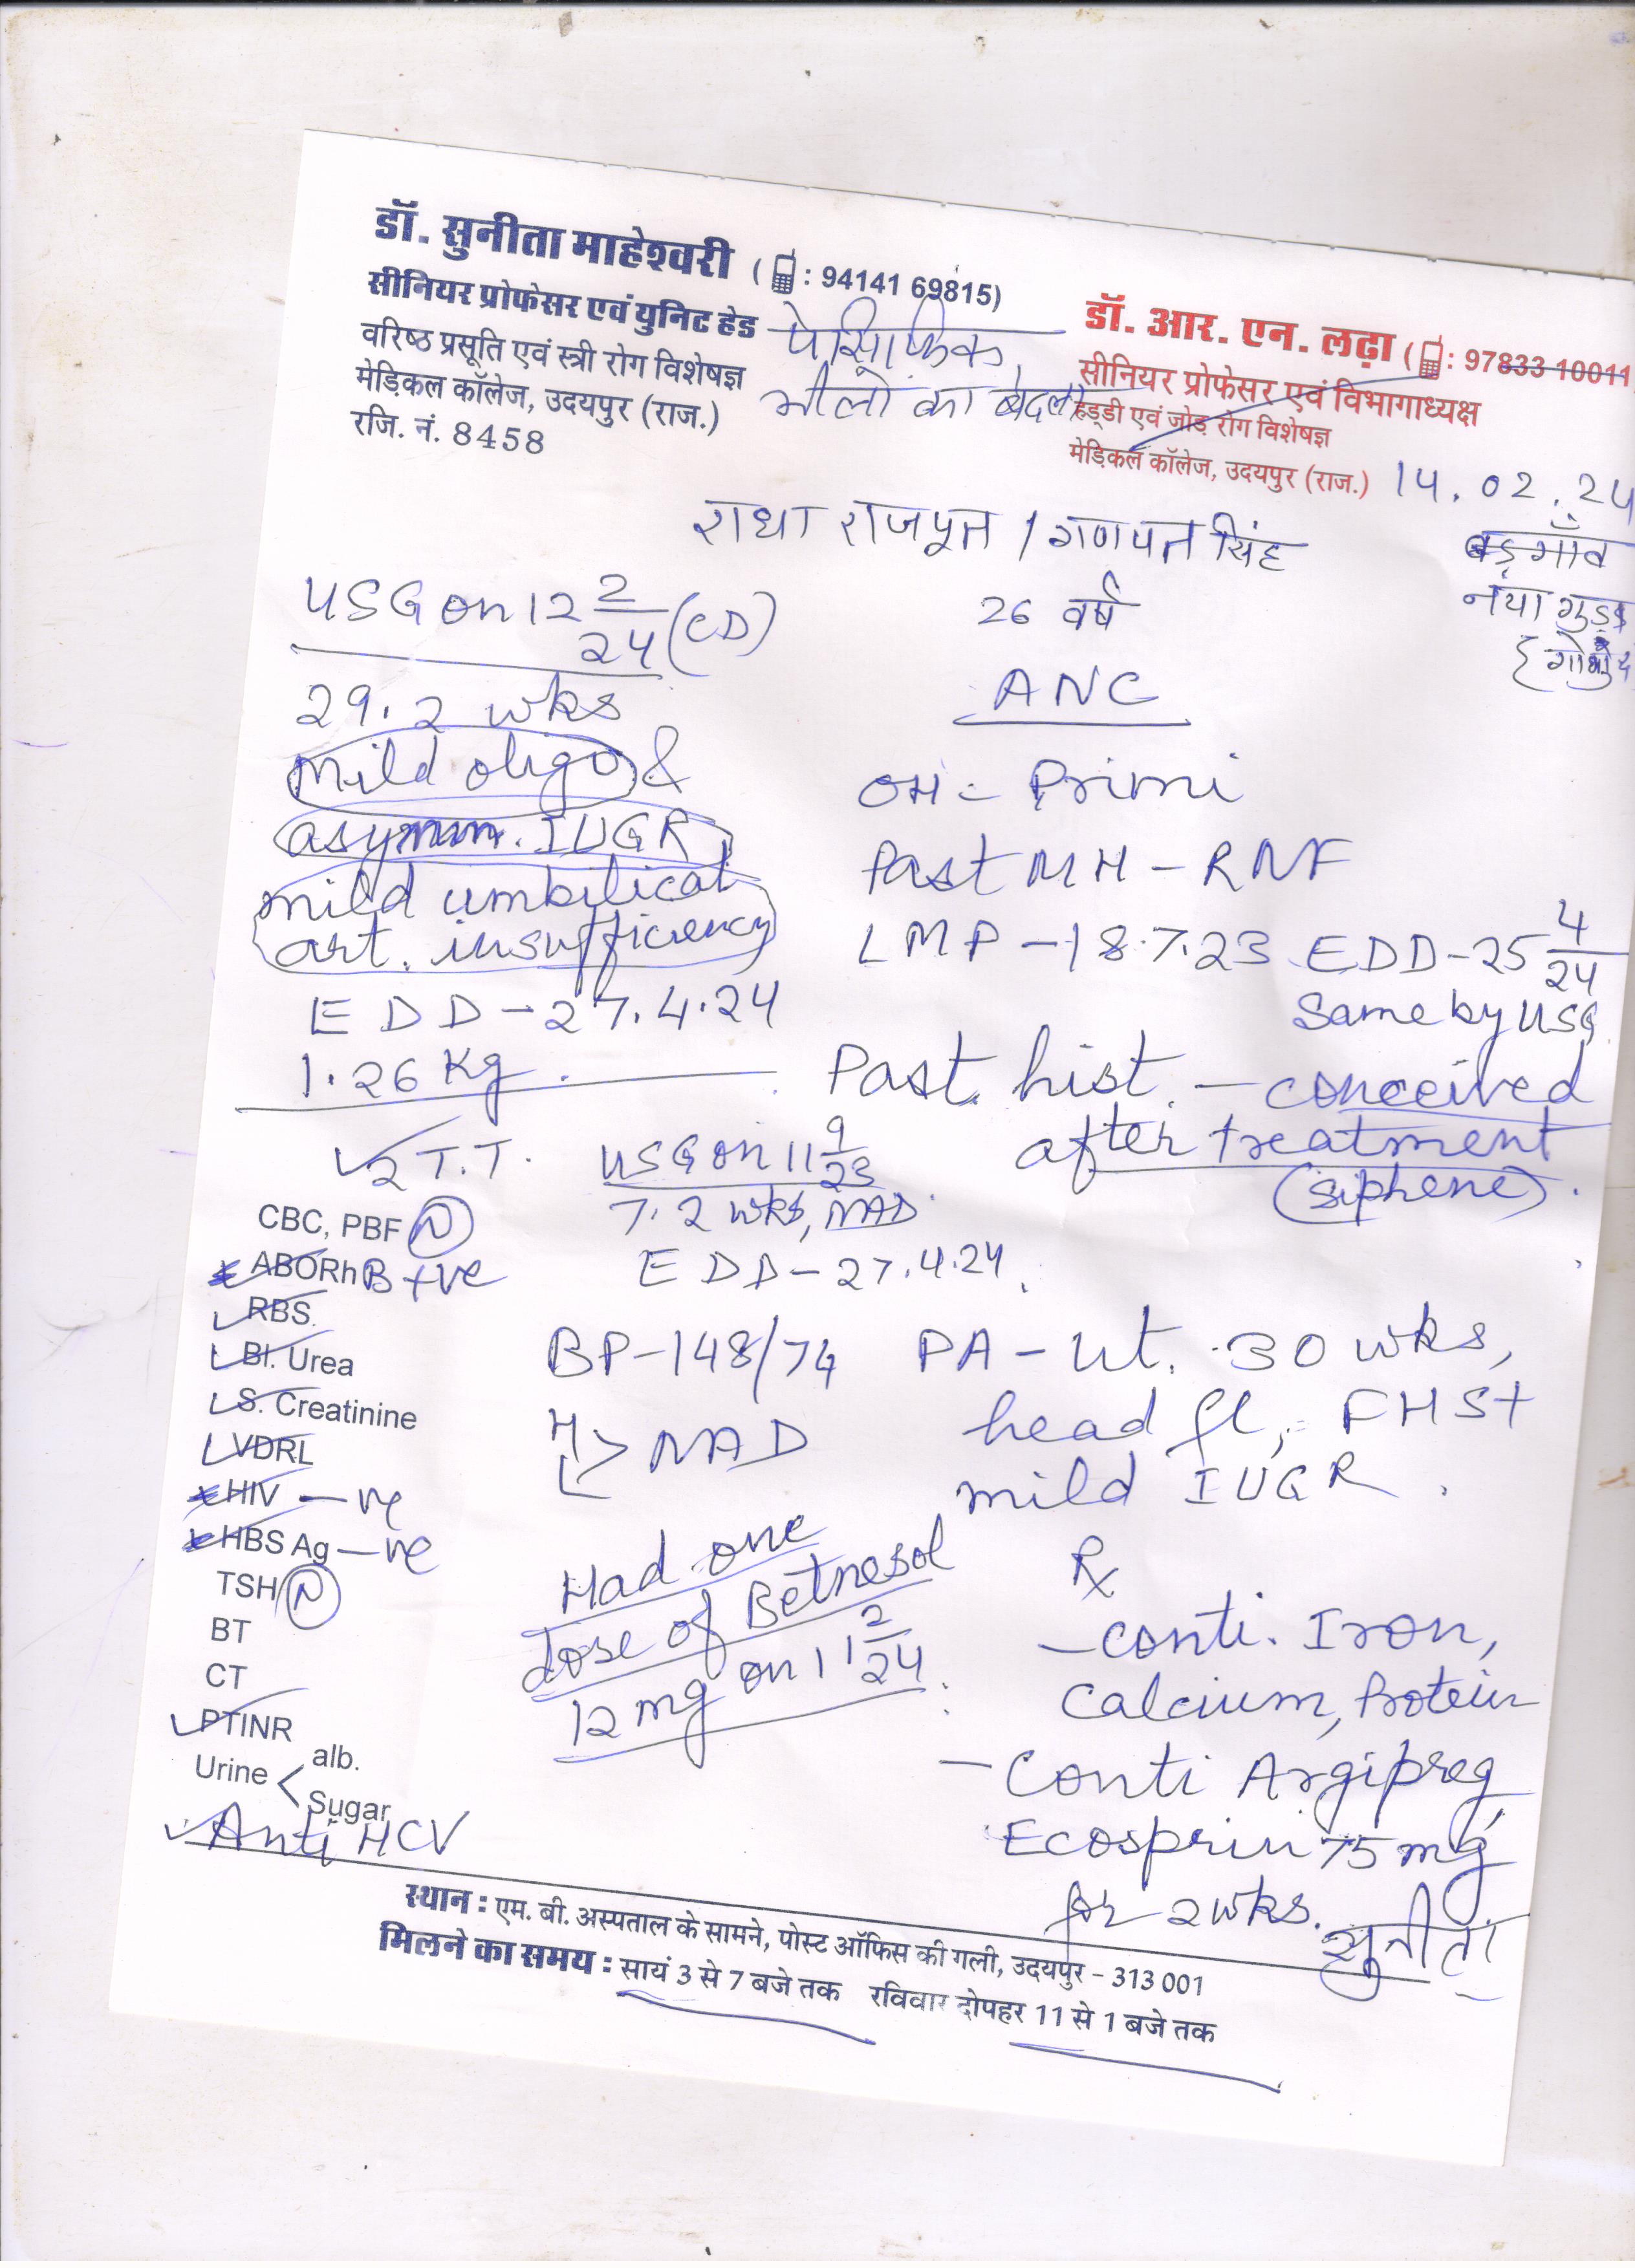 डॉ. सुनीता माहेश्वरी ( : 94141 69815)
सीनियर प्रोफेसर एवं युनिट हेड
वरिष्ठ प्रसूति एवं स्त्री रोग विशेषज्ञ
मेडिकल कॉलेज, उदयपुर (राज.)
रजि. नं. 8458
पेसिफिक
भीलों का बेदला
डॉ. आर. एन. लढ़ा ( : 97833 10011
सीनियर प्रोफेसर एवं विभागाध्यक्ष
हड्डी एवं जोड़ रोग विशेषज्ञ
मेडिकल कॉलेज, उदयपुर (राज.)
14.02.24
राधा राजपूत / गणपत सिंह
बड़गाँव
नया गुड़ा
26 वर्ष
ANC
USG on 12 2/24 (CD)
29.2 wks
mild oligo &
asymm. IUGR
mild umbilical
art. insufficiency
EDD - 27.4.24
1.26 Kg
OH - Primi
Past MH - RNF
LMP - 18.7.23 EDD - 25 4/24
Same by USG
Past hist. - conceived
after treatment
(siphene).
2 T.T.
USG on 11 9/23
7.2 wks, NAD
EDD - 27.4.24
CBC, PBF N
ABORh B +ve
RBS.
Bl. Urea
S. Creatinine
VDRL
HIV - ve
HBS Ag - ve
TSH N
BT
CT
PTINR
Urine < alb.
Sugar
Anti HCV
BP - 148/74
H
L > NAD
PA - Ut. 30 wks,
head fl, FHS+
mild IUGR.
Had one
dose of Betnesol
12 mg on 11 2/24.
Rx
- Conti. Iron,
Calcium, Protein
- Conti Argipreg,
Ecosprin 75 mg
for 2 wks.
सुनीता
स्थान : एम. बी. अस्पताल के सामने, पोस्ट ऑफिस की गली, उदयपुर - 313 001
मिलने का समय : सायं 3 से 7 बजे तक रविवार दोपहर 11 से 1 बजे तक